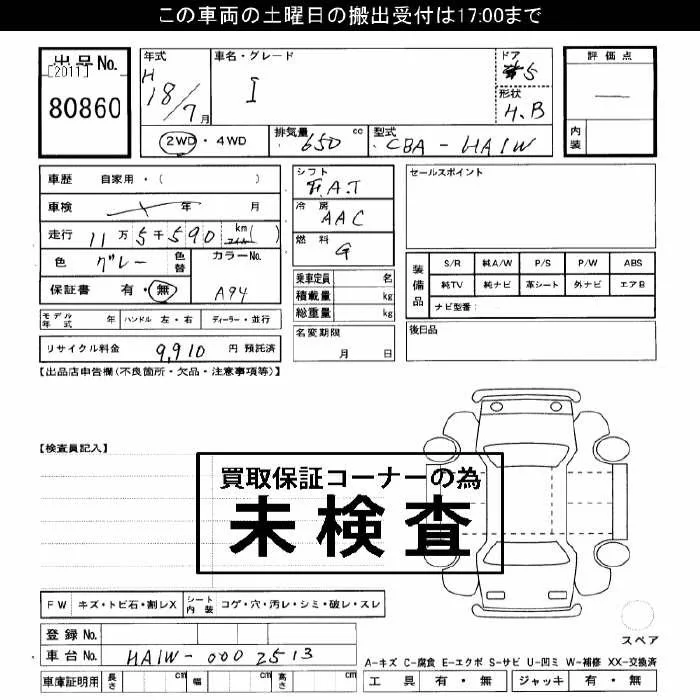 この車両の土曜日の搬出受付は17:00まで
出品No.
[2011]
80860
年式
H
18/7月
車名・グレード
I
ドア
5
形状
H.B
評価点
—
内装
2WD・4WD
排気量 650 cc
型式 CBA-HA1W
車歴 自家用・( )
車検 年 月
走行 11万5千590 km マイル( )
色 グレー
色替
カラーNo.
A94
保証書 有・無
モデル年式 年
ハンドル 左・右
ディーラー・並行
リサイクル料金 9,910 円 預託済
シフト
F.A.T
冷房
AAC
燃料
G
乗車定員 名
積載量 kg
総重量 kg
名変期限
月 日
セールスポイント
装備品
S/R 純A/W P/S P/W ABS
純TV 純ナビ 革シート 外ナビ エアB
ナビ型番:
後日品
【出品店申告欄(不良箇所・欠品・注意事項等)】
【検査員記入】
買取保証コーナーの為
未検査
FW キズ・トビ石・割レX
シート内装 コゲ・穴・汚レ・シミ・破レ・スレ
登録No.
車台No. HA1W-0002513
車庫証明用 長さ cm 幅 cm 高さ cm
スペア
A-キズ C-腐食 E-エクボ S-サビ U-凹ミ W-補修 XX-交換済
工具 有・無 ジャッキ 有・無